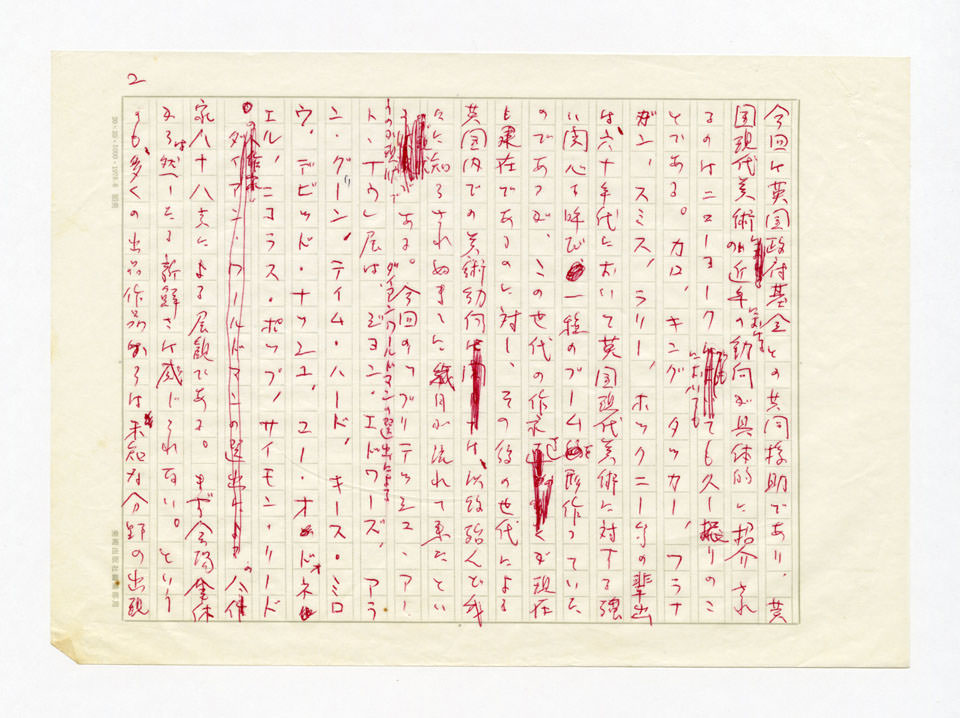 2
今回は英国政府基金との共同援助であり、英
国現代美術の近年の動向が具体的に紹介され
るのはニューヨークにおいても久し振りのこ
とである。カロ、キング、タッカー、フラナ
ガン、スミス、ラリー、ホックニー等の輩出
は、六十年代において英国現代美術に対する強
い関心を呼び一種のブームを形作っていた
のであったが、この世代の作家達の多くが現在
も健在であるのに対し、その後の世代による
英国内での美術動向は、以後殆んど我
々に知らされぬままに歳月が流れて来たとい
うのが現状である。今回のブリティッシュ・アー
ト・ナウ展は、ダイアン・ワールドマンの選出によるジョン・エドワーズ、アラ
ン・グリーン、ティム・ハード、キース・ミロ
ウ、デビッド・ナッシュ、ヒュー・オドネ
エル、ニコラス・ポップ、サイモン・リード
の八作
家八十八点による展観である。まず会場全体
からは然したる新鮮さは感じられない。という
のも、多くの出品作品からは未知な分野の出現
20×20=1000・1978・8